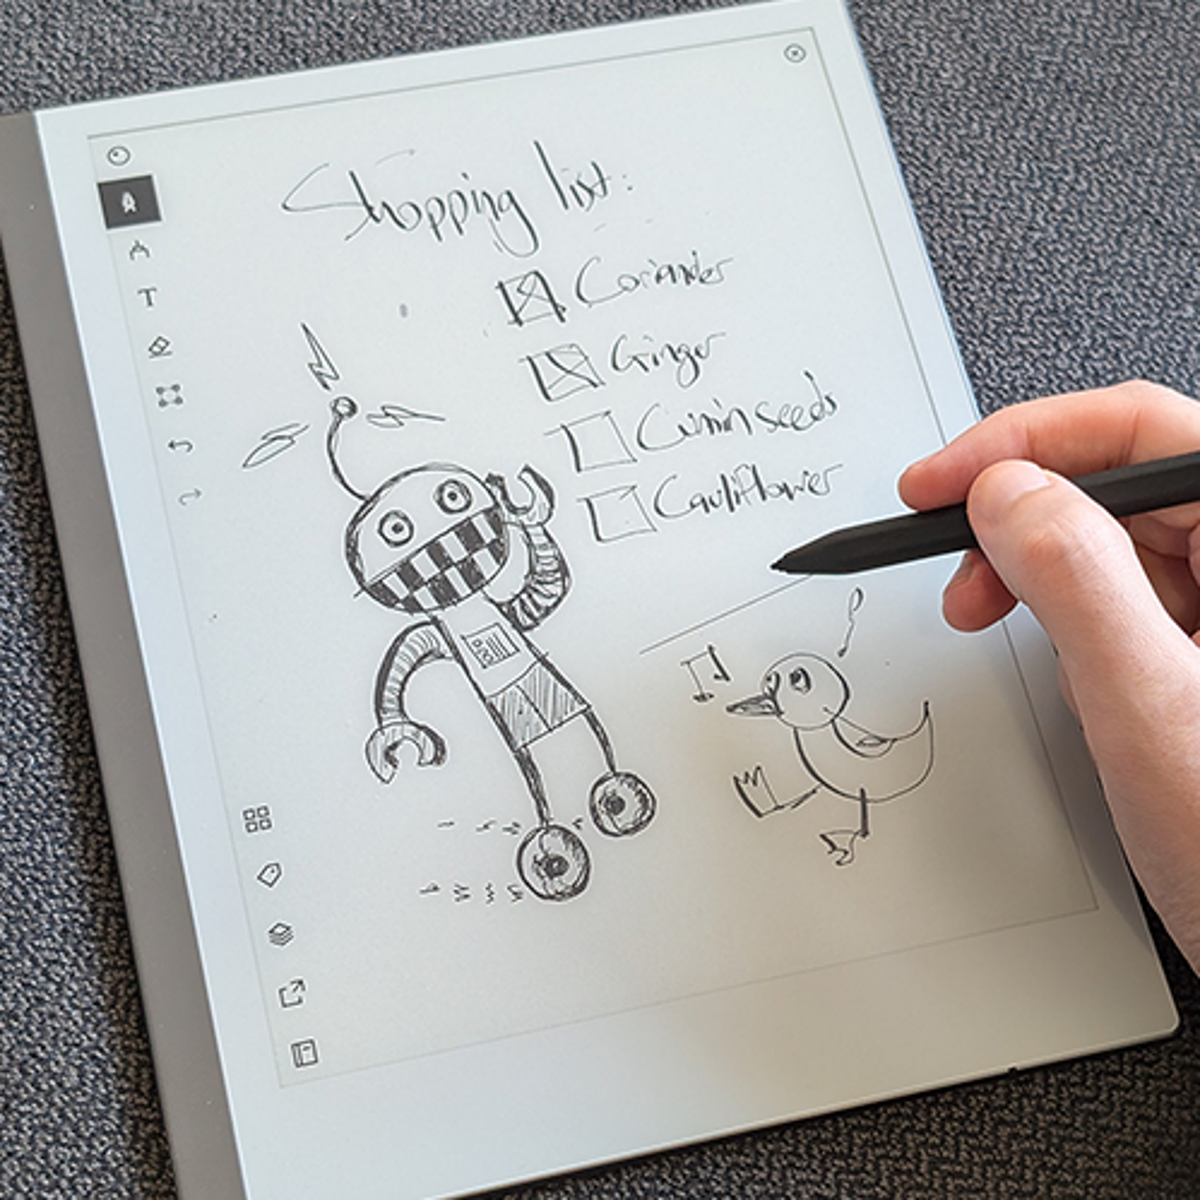 Shopping list:
Coriander
Ginger
Cumin seeds
Cauliflower
T